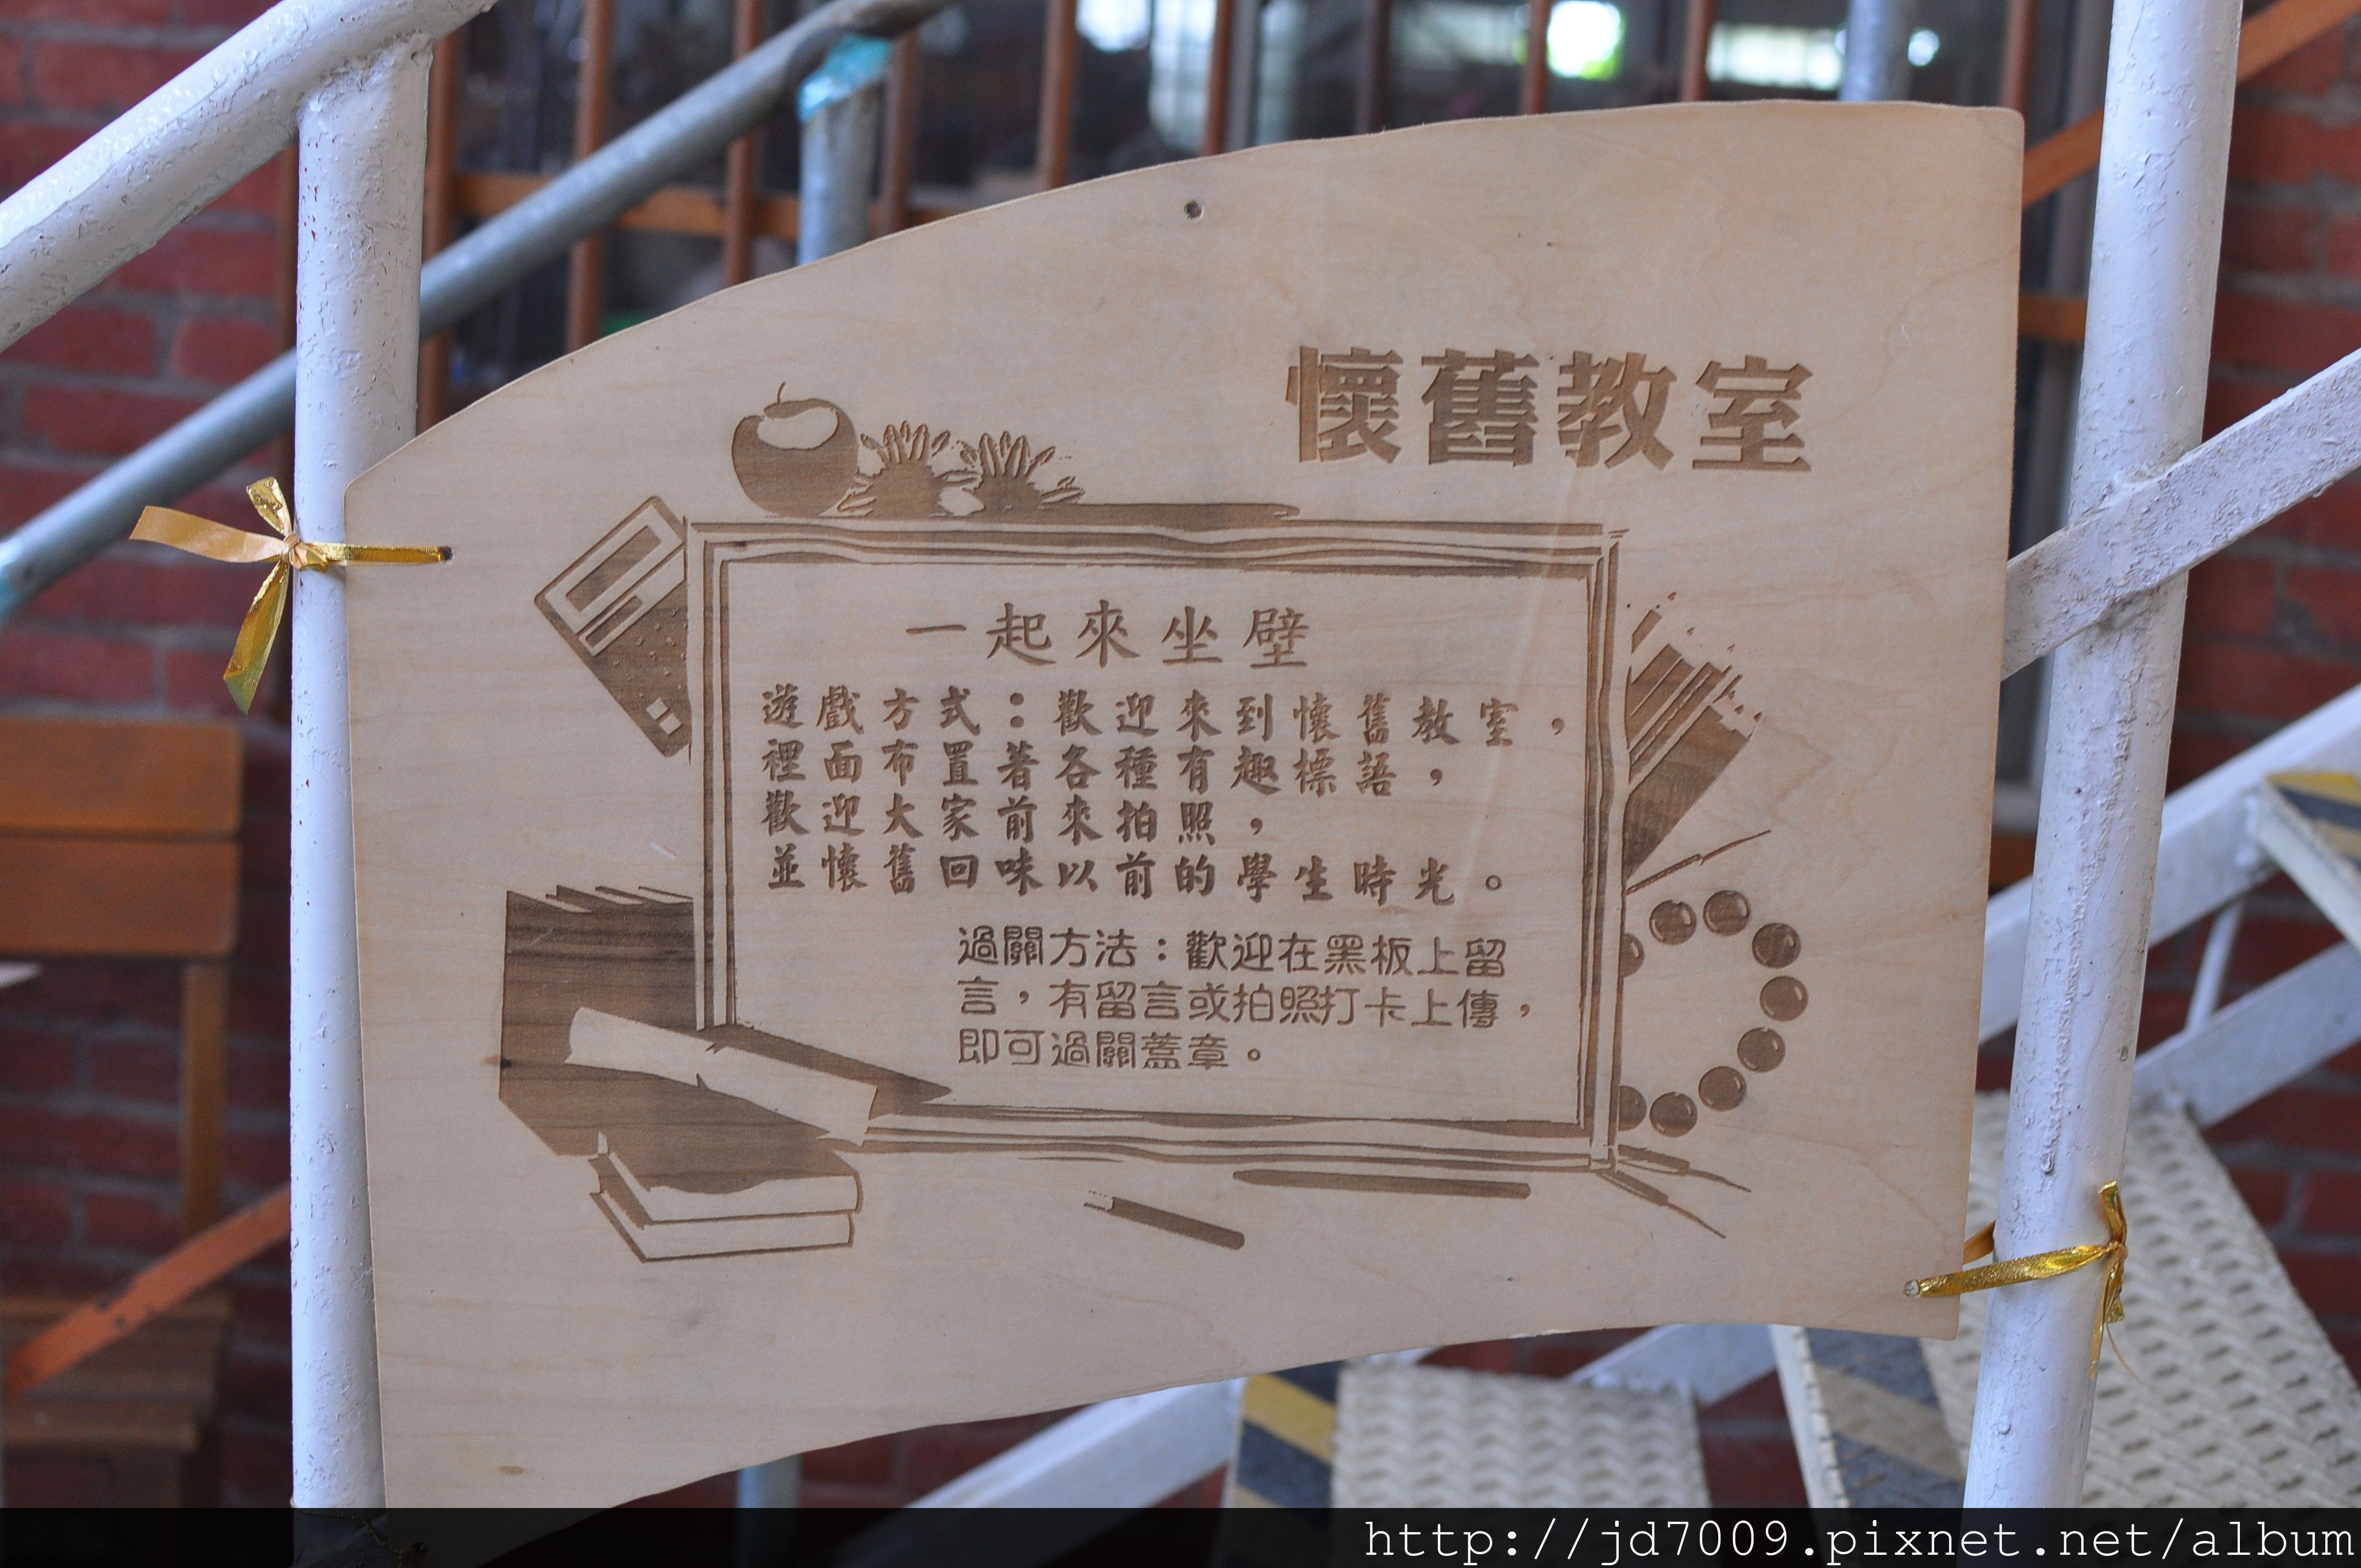 懷舊教室
一起來坐壁
遊戲方式：歡迎來到懷舊教室，
裡面布置著各種有趣標語，
歡迎大家前來拍照，
並懷舊回味以前的學生時光。
過關方法：歡迎在黑板上留
言，有留言或拍照打卡上傳，
即可過關蓋章。
http://jd7009.pixnet.net/album